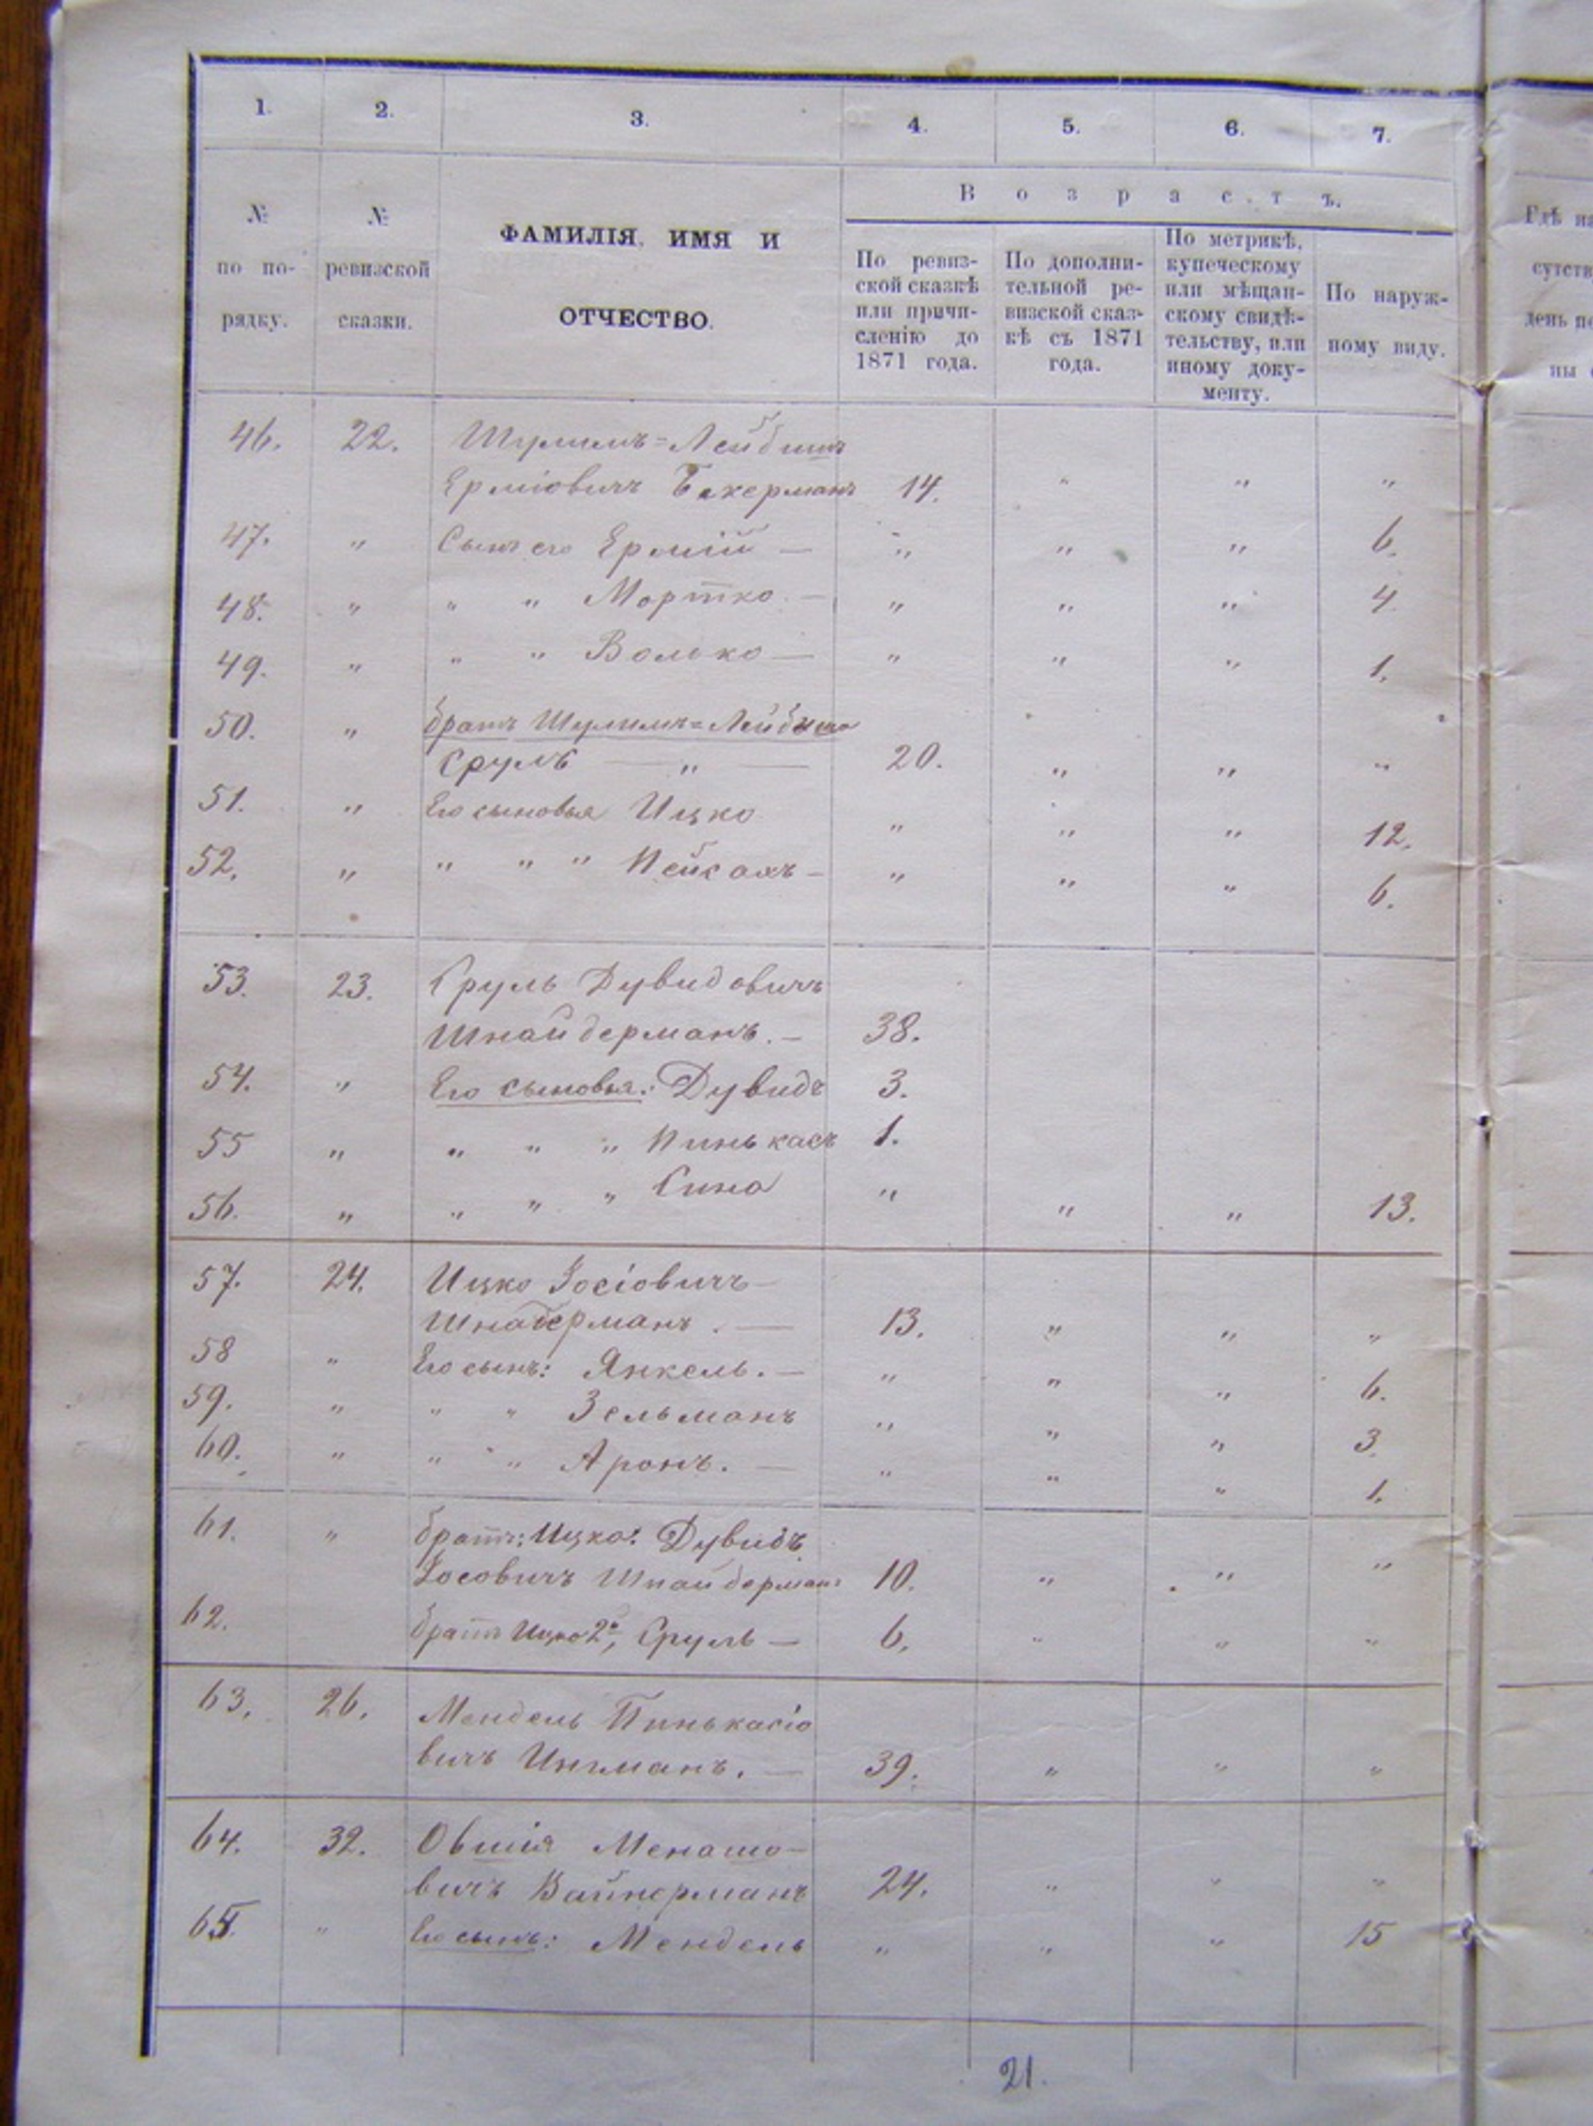 1. 2. 3. 4. 5. 6. 7.
№ по по-рядку.
№ ревизской сказки.
ФАМИЛІЯ, ИМЯ И
ОТЧЕСТВО.
Возрастъ.
По ревиз-
ской сказкѣ
или причи-
сленію до
1871 года.
По дополни-
тельной ре-
визской сказ-
кѣ съ 1871
года.
По метрикѣ,
купеческому
или мѣщан-
скому свидѣ-
тельству, или
иному доку-
менту.
По наруж-
ному виду.
Гдѣ на
сутств
день по
ны
46. 22. Шулимъ=Лейбишъ
Ерміовичъ Бекерманъ 14. " " "
47. " Сынъ его Ермій — " " " 6.
48. " " " Мортко — " " " 4
49. " " " Волько — " " " 1.
50. " братъ Шулимъ=Лейбиша
Сруль — " — 20. " " "
51. " Его сыновья Ицко " " " 12.
52. " " " " Пейсахъ — " " " 6.
53. 23. Сруль Дувидовичъ
Шнайдерманъ. — 38.
54. " Его сыновья: Дувидъ 3.
55 " " " " Пинькасъ 1.
56. " " " " Сина " " " 13.
57. 24. Ицко Іосіовичъ
Шнадерманъ. — 13. " " "
58 " Его сынъ: Янкель. — " " " 6.
59. " " " Зельманъ " " " 3
60. " " " Аронъ. — " " " 1.
61. " братъ: Ицко: Дувидъ
Іосовичъ Шнайдерманъ 10. " " "
62. братъ Ицко 2й, Сруль — 6. " " "
63. 26. Мендель Пинькасіо
вичъ Ингманъ. — 39. " " "
64. 32. Овшія Менашо-
вичъ Вайнерманъ 24. " " "
65. " Его сынъ: Мендель " " " 15
21.